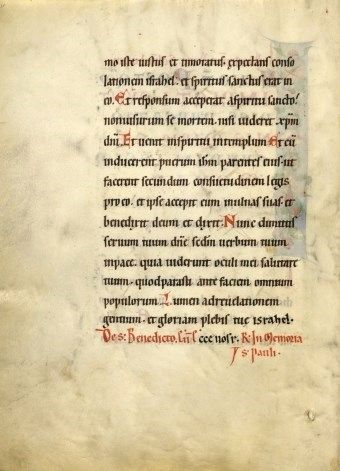 mo iste iustus et timoratus. expectans conso
lationem israhel. et spiritus sanctus erat in
eo. Et responsum acceperat a spiritu sancto.
non uisurum se mortem. nisi uideret xpm
dni. Et uenit in spiritu in templum. Et cu
inducerent puerum ihm parentes eius. ut
facerent secundum consuetudinem legis
pro eo. et ipse accepit eum in ulnas suas. et
benedixit deum et dixit. Nunc dimittis
seruum tuum dne. sedm uerbum tuum
in pace. quia uiderunt oculi mei salutare
tuum. quod parasti ante faciem omnium
populorum. Lumen ad reuelationem
gentium. et gloriam plebis tue israhel.
De s. Benedicto. ccc nosr. R. In Memoria
s. Pauli.